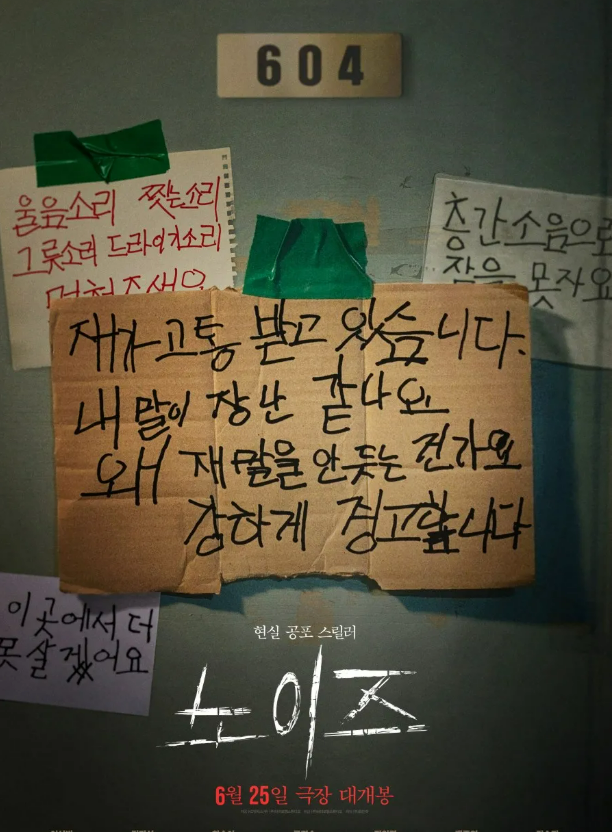 604
울음소리 찢는소리
그릇소리 드라이기소리
멈춰주세요
층간소음으로
잠을 못자요
제가 고통 받고 있습니다.
내 말이 장난 같나요
왜 제 말을 안 듣는 건가요
강하게 경고합니다
이곳에서 더
못살겠어요
현실 공포 스릴러
노이즈
6월 25일 극장 대개봉